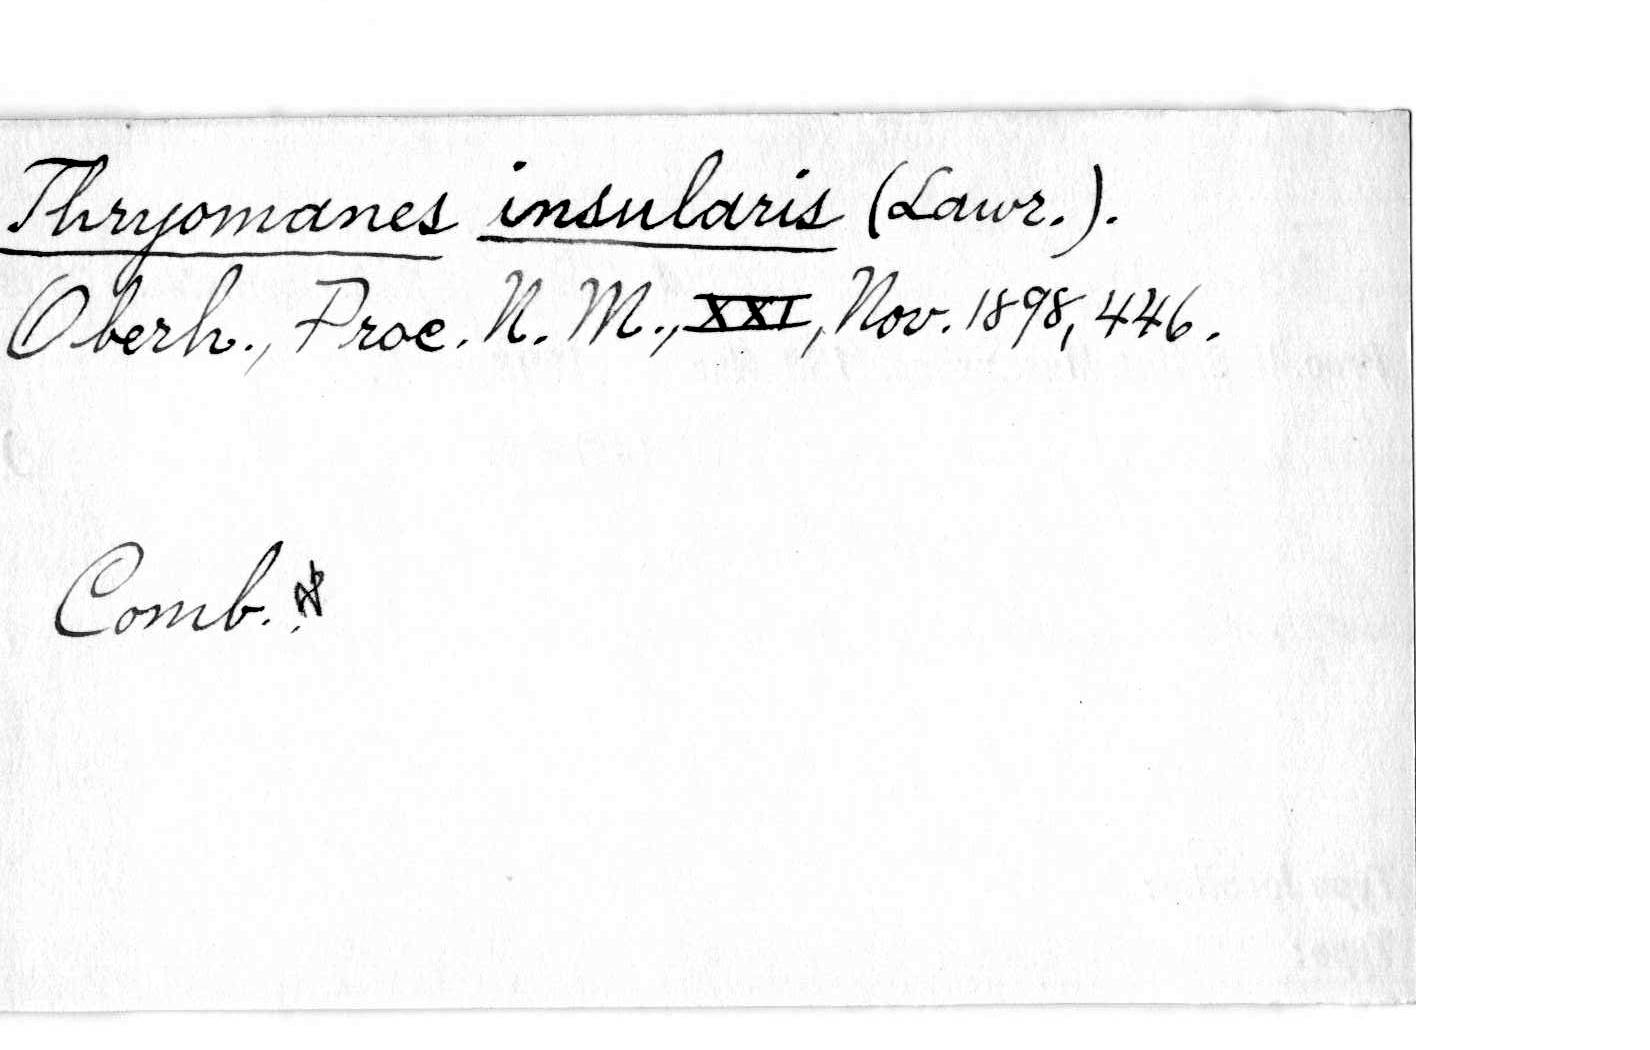 Thryomanes insularis (Lawr.).
Oberh., Proc. N. M., XXI, Nov. 1898, 446.
Comb.